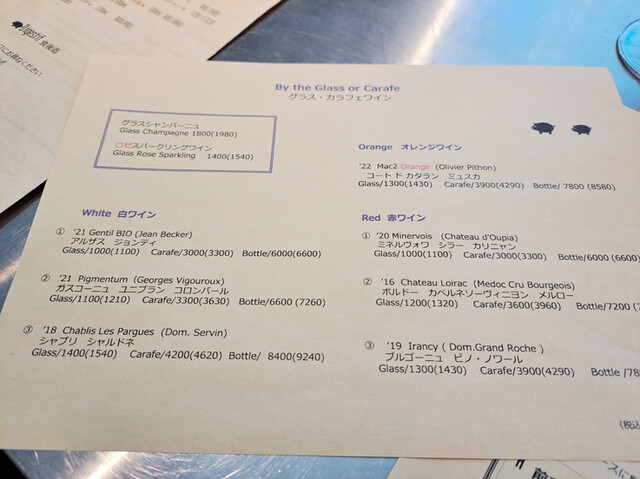 Digestif 食後酒
By the Glass or Carafe
グラス・カラフェワイン
グラスシャンパーニュ
Glass Champagne 1800(1980)
ロゼスパークリングワイン
Glass Rose Sparkling 1400(1540)
Orange オレンジワイン
'22 Mac2 Orange (Olivier Pithon)
コート ド カタラン ミュスカ
Glass/1300(1430) Carafe/3900(4290) Bottle/ 7800 (8580)
White 白ワイン
① '21 Gentil BIO (Jean Becker)
アルザス ジョンティ
Glass/1000(1100) Carafe/3000(3300) Bottle/6000(6600)
② '21 Pigmentum (Georges Vigouroux)
ガスコーニュ ユニブラン コロンバール
Glass/1100(1210) Carafe/3300(3630) Bottle/6600 (7260)
③ '18 Chablis Les Pargues (Dom. Servin)
シャブリ シャルドネ
Glass/1400(1540) Carafe/4200(4620) Bottle/ 8400(9240)
Red 赤ワイン
① '20 Minervois (Chateau d'Oupia)
ミネルヴォワ シラー カリニャン
Glass/1000(1100) Carafe/3000(3300) Bottle/6000 (6600)
② '16 Chateau Loirac (Medoc Cru Bourgeois)
ボルドー カベルネソーヴィニヨン メルロー
Glass/1200(1320) Carafe/3600(3960) Bottle/7200
③ '19 Irancy ( Dom.Grand Roche )
ブルゴーニュ ピノ・ノワール
Glass/1300(1430) Carafe/3900(4290) Bottle /78
(税込